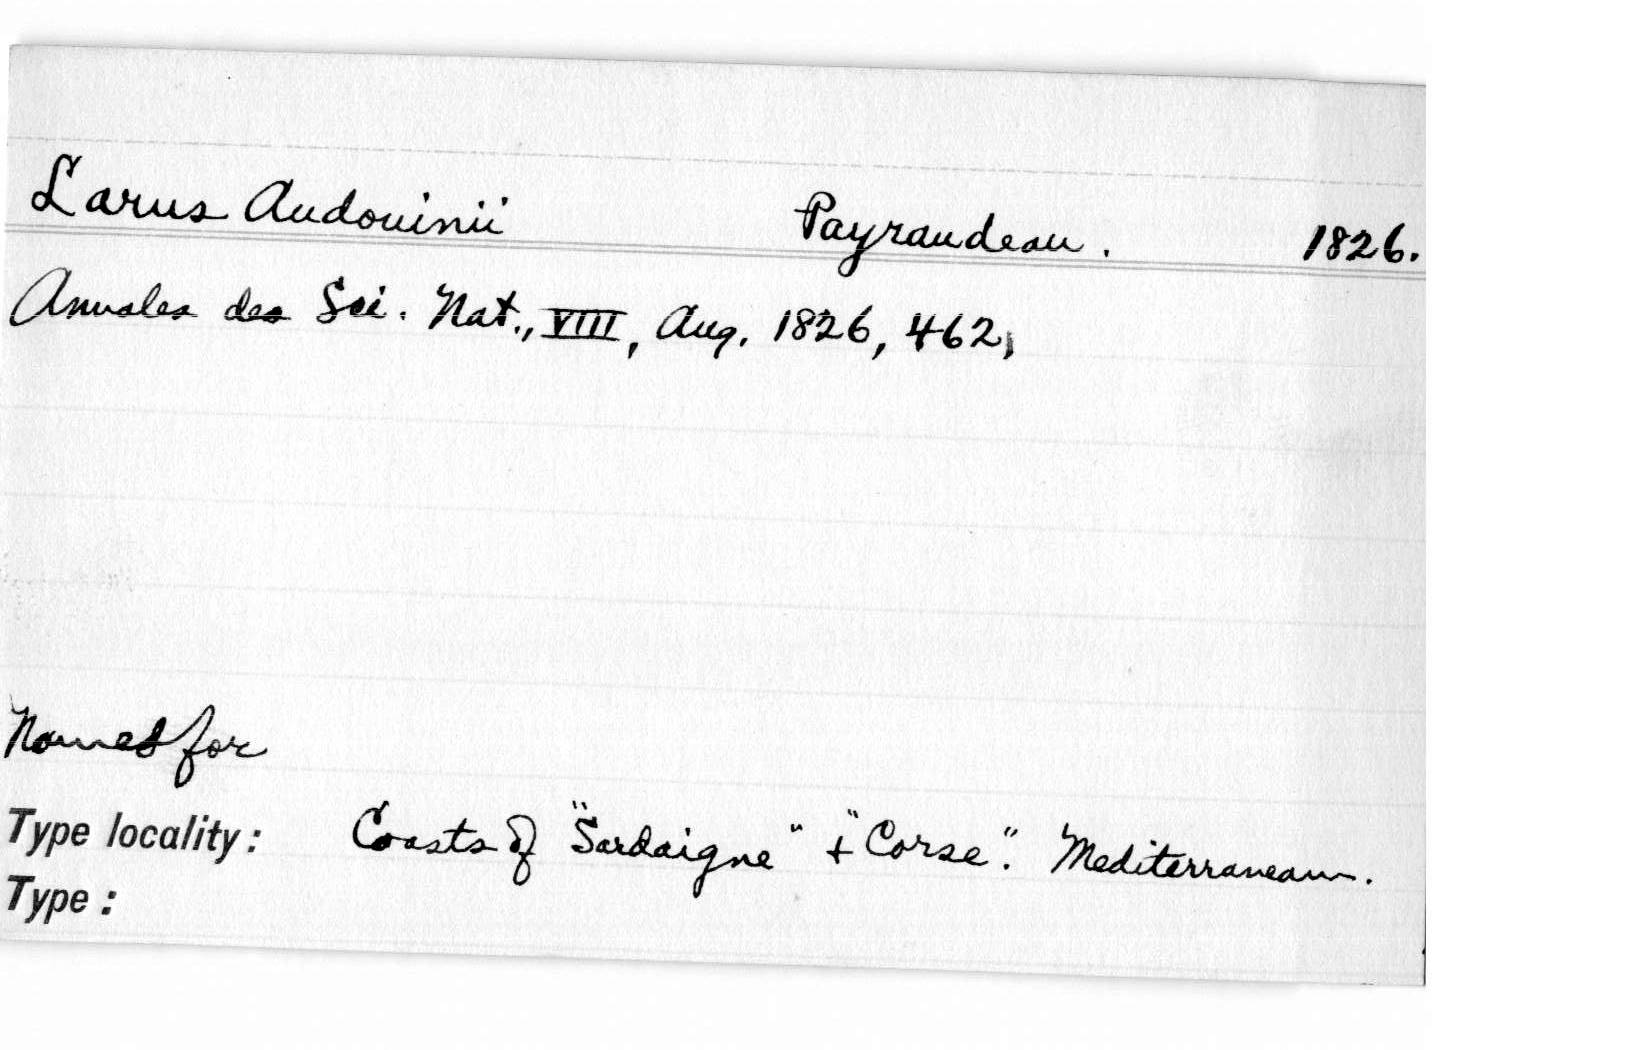 Larus Audouinii Payraudeau. 1826.
Annales des Sci. Nat., VIII, Aug. 1826, 462,
Named for
Type locality: Coasts of "Sardaigne" + "Corse". Mediterranean.
Type: